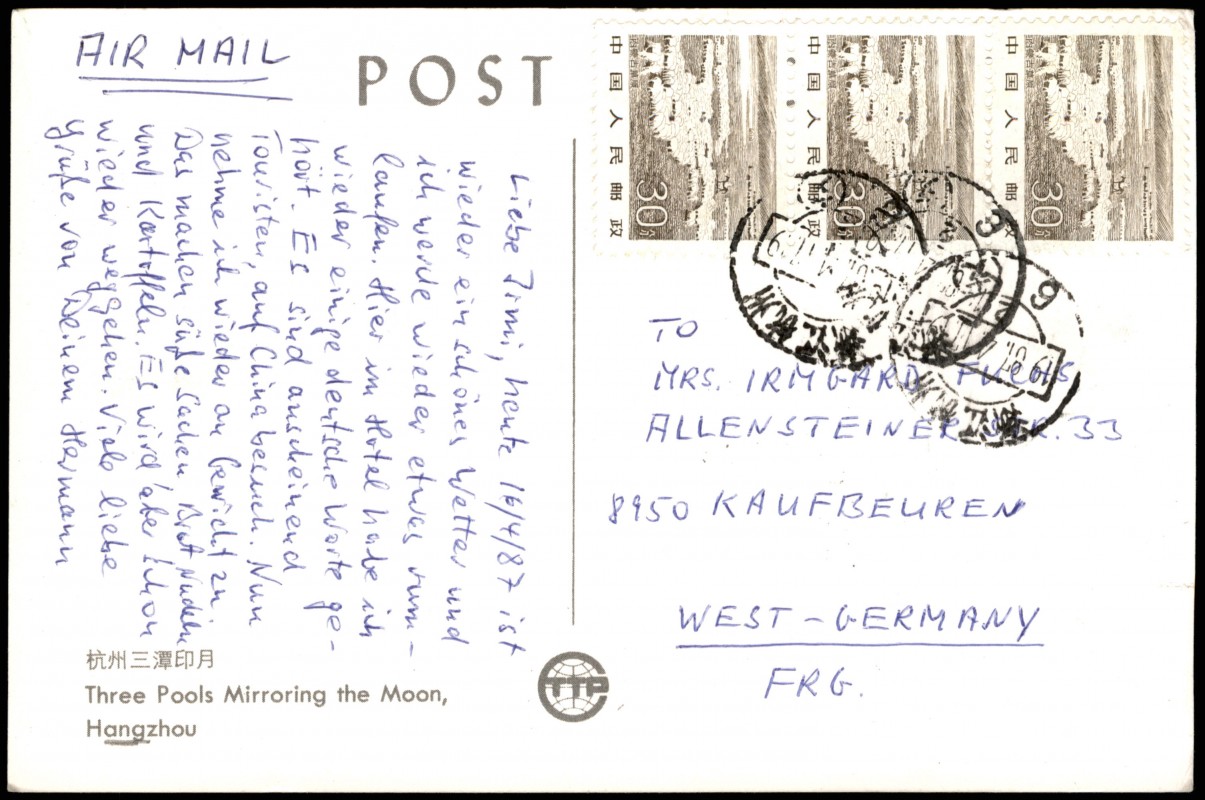 AIR MAIL
POST
Liebe Irmi, heute 16/4/87 ist
wieder ein schönes Wetter und
ich werde wieder etwas rum-
laufen. Hier im Hotel habe ich
wieder einige deutsche Worte ge-
hört. Es sind anscheinend
Touristen, auf China besuch. Nun
nehme ich wieder an Gewicht zu.
Das machen süße Sachen Brot Nudeln
und Kartoffeln. Es wird aber schon
wieder weggehen. Viele liebe
Grüße von Deinem Hermann
杭州三潭印月
Three Pools Mirroring the Moon,
Hangzhou
TTP
中国人民邮政
30分
中国人民邮政
30分
中国人民邮政
30分
浙江杭州
TO
MRS. IRMGARD FUCHS
ALLENSTEINER STR. 33
8950 KAUFBEUREN
WEST-GERMANY
FRG.